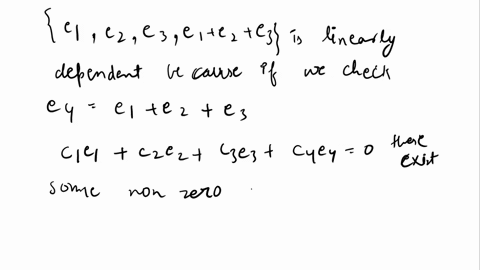 {e1, e2, e3, e1+e2+e3} is linearly
dependent be cause if we check
e4 = e1 + e2 + e3
c1e1 + c2e2 + c3e3 + c4e4 = 0 there exist
some non zero